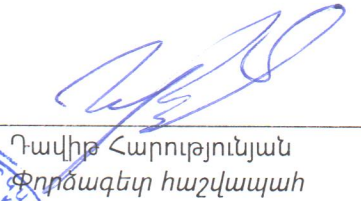 Դավիթ Հարությունյան
Փորձագետ հաշվապահ